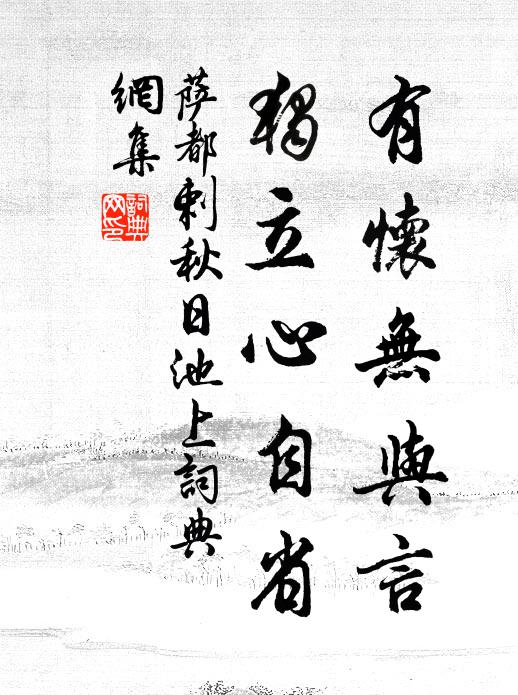 有懷無與言
獨立心自省
薩都剌秋日池上詞典
網集
詞典
网印